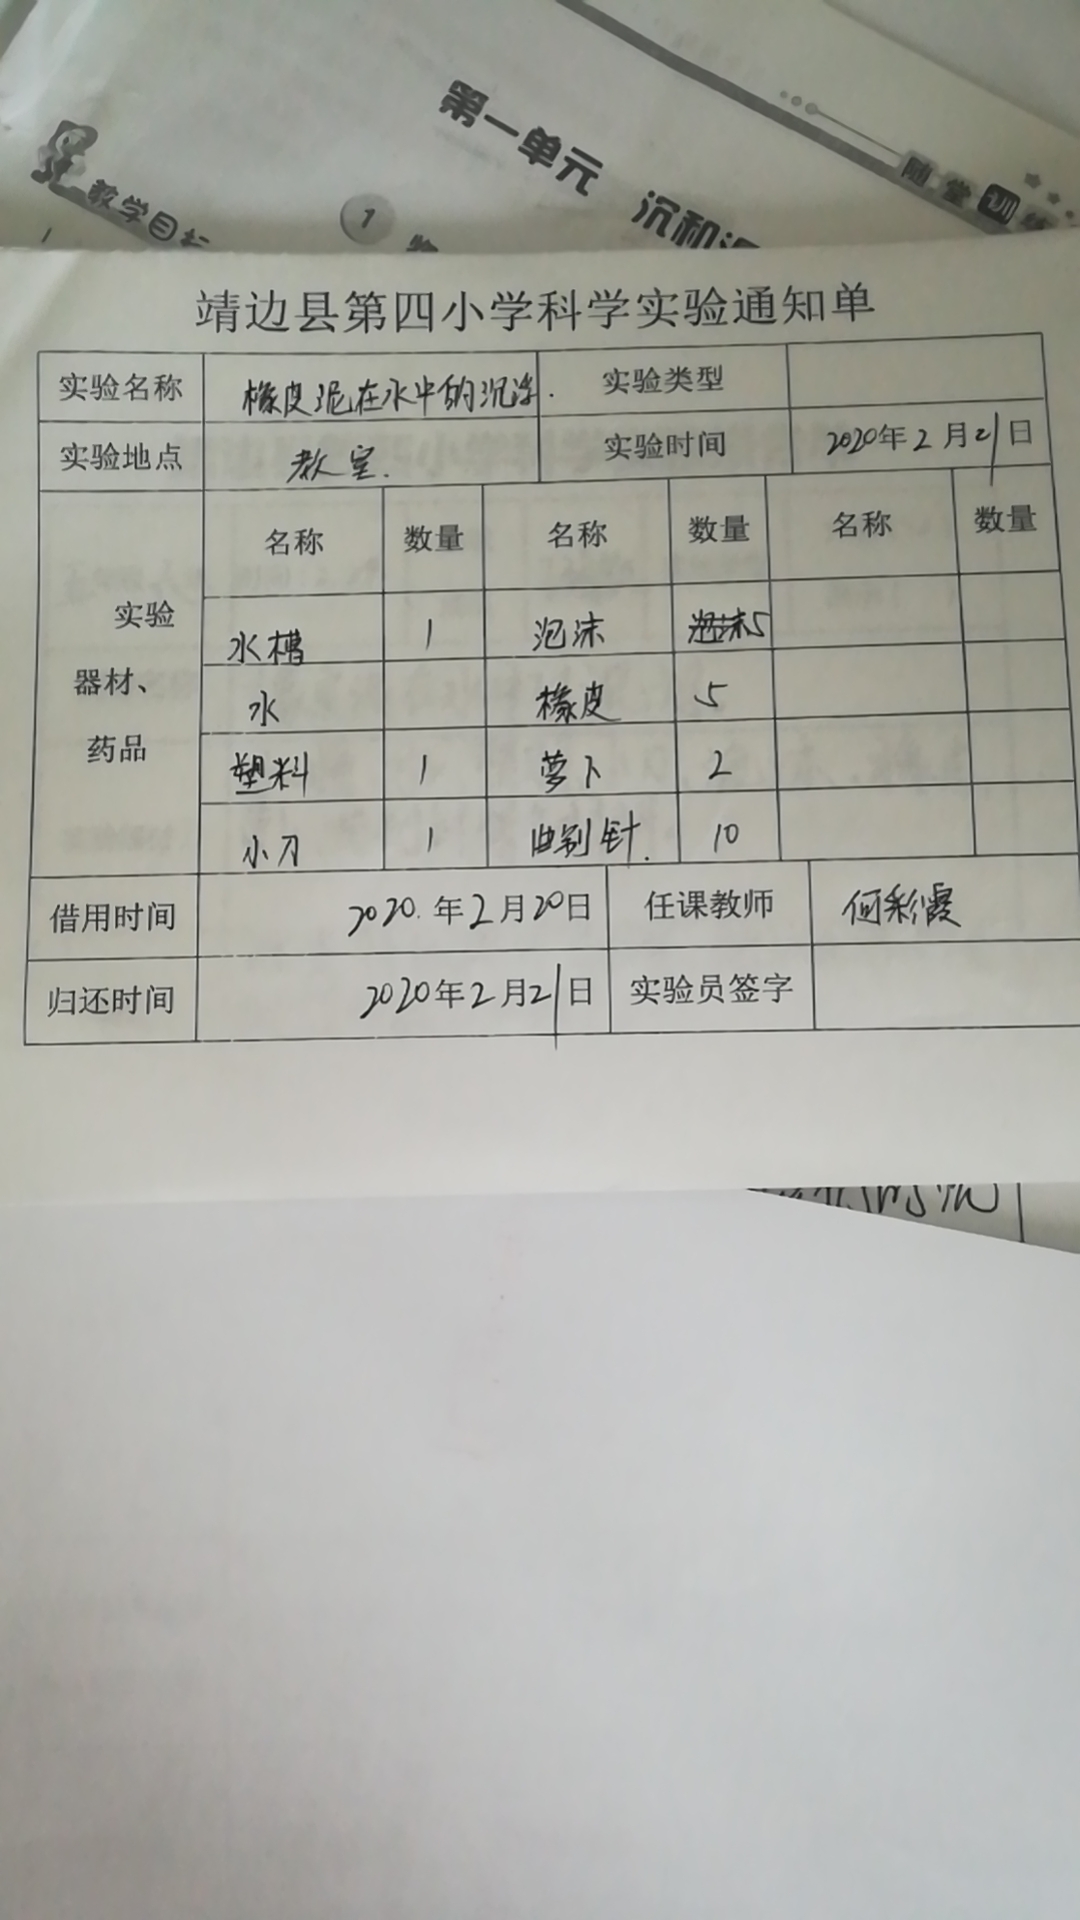 第一单元 沉和
随堂训练
教学目标
1
靖边县第四小学科学实验通知单
实验名称 橡皮泥在水中的沉浮. 实验类型
实验地点 教室. 实验时间 2020年2月21日
实验器材、药品 名称 数量 名称 数量 名称 数量
水槽 1 泡沫 5
水 橡皮 5
塑料 1 萝卜 2
小刀 1 曲别针. 10
借用时间 2020.年2月20日 任课教师 何彩霞
归还时间 2020年2月21日 实验员签字